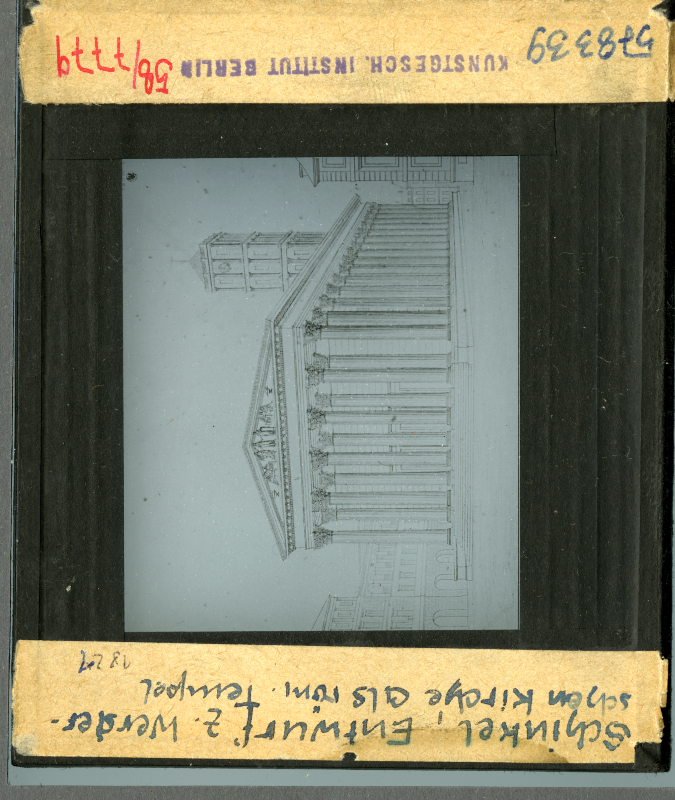 Schinkel, Entwurf z. Werder-
schen Kirche als röm. Tempel
1821
578339
KUNSTGESCH. INSTITUT BERLIN
58/7779